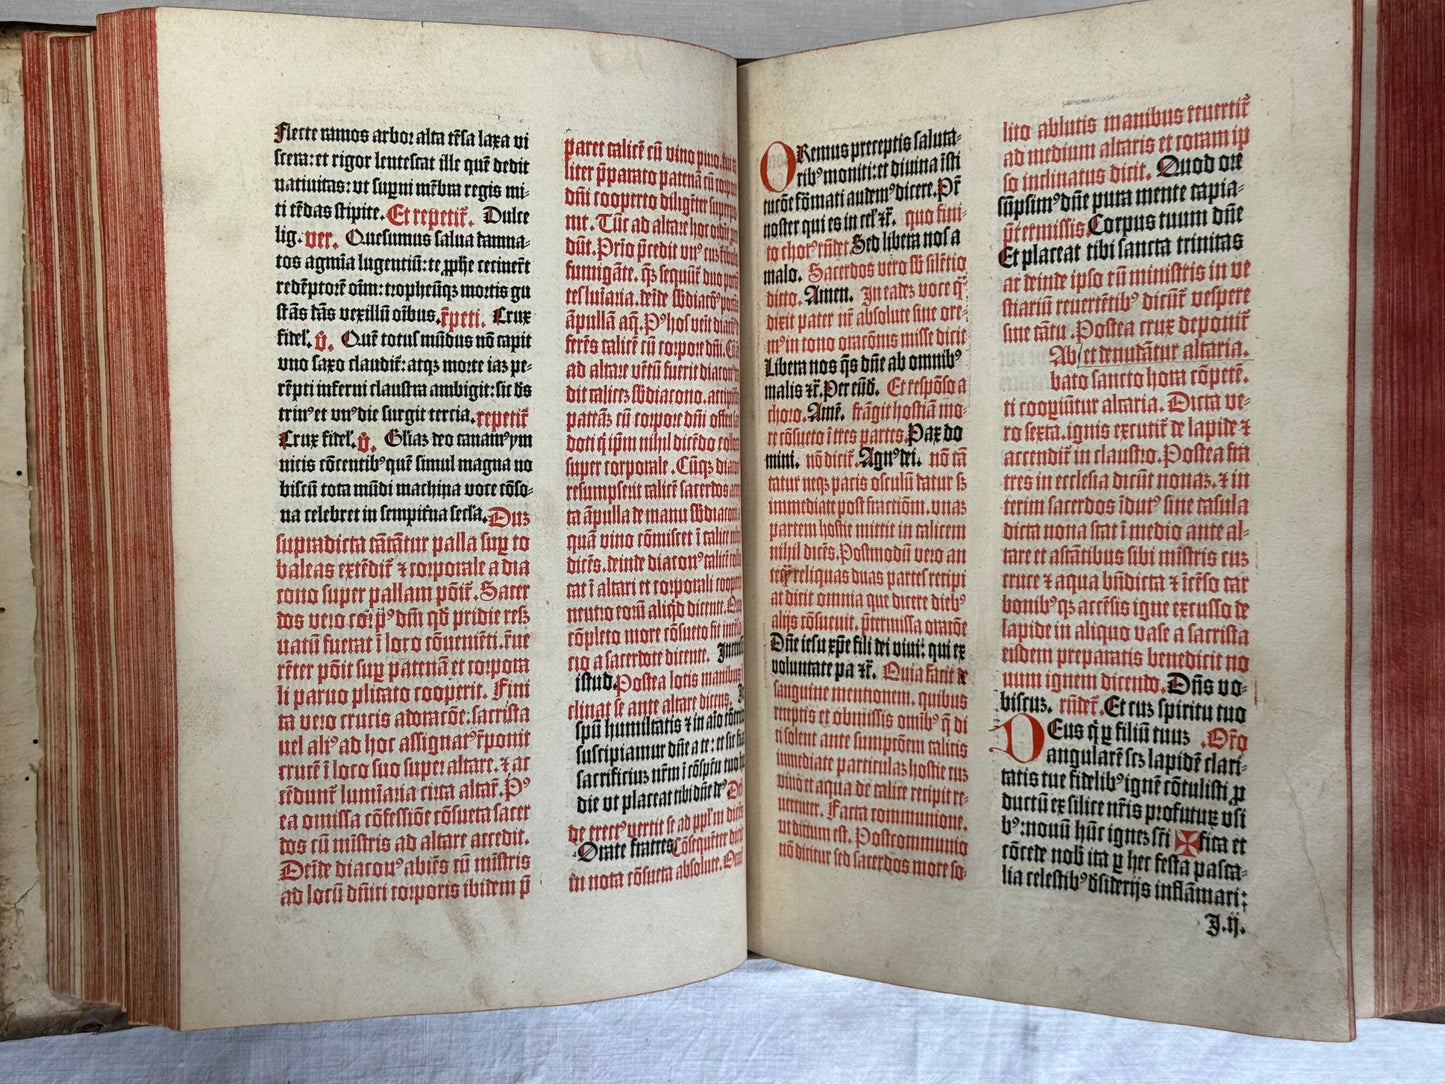 Flecte ramos arbor alta tẽsa laxa vi
scera: et rigor lentescat ille quẽ dedit
natiuitas: vt supni mẽbra regis mi-
ti tẽdas stipite. Et repetit̃. Dulce
lig. ver. Quesumus salua damna-
tos agmĩa lugentiũ: te prophe recineret
redẽptorẽ oĩm: tropheũqz mortis gu
stãs dãs vexillũ oĩbus. r̃peti. Crux
fidel̃. v̾. Quẽ totus mũdus nõ capit
vno saxo claudit̃: atqz morte iaz pe-
rẽpti inferni claustra ambigit: sic d̃s
triuꝰ et vnꝰ die surgit tercia. repetit̃
Crux fidel. v̾. Gl̃iaz deo canamꝰ ym
nicis cõcentibꝰ quẽ simul magna no
biscũ tota mũdi machina voce cõso-
na celebret in sempit̃na secl̃a. Duz
supradicta cãtãtur palla sup to
baleas extẽdit̃ ⁊ corporale a dia
cono super pallam põit̃. Sacer
dos vero corpꝰ dñi qd̃ pridie resz
uatũ fuerat ĩ loco cõueniẽti. r̃ue
rẽter põit sup patenã et corpora
li paruo plicato cooperit. Fini
ta vero crucis adoracõe: sacrista
uel aliꝰ ad hoc assignatꝰ r̃ponit
crucẽ ĩ loco suo super altare. ⁊ ac
cẽdunt̃ lumĩaria circa altar̃. Pꝰ
ea omissa cõfessiõe cõsueta sacer
dos cũ mĩstris ad altare accedit.
Deĩde diaconꝰ abiẽs cũ mĩstris
ad locũ dñici corporis ibidem p̃
paret calicẽ cũ vino puro.
liter p̃parato patenã cũ corpore
dñi cooperto diligẽter superpo
nit. Tũc ad altare hoc ordĩe
dũt. Prĩo p̃cedit vnꝰ cuz
fumigãte. q̃z sequũt̃ duo
tes luĩaria. deĩde sb̃diacꝰ
ãpullam aq̃. Pꝰ hos veĩt diacꝰ
ferẽs calicẽ cũ corpore dñi.
ad altare vẽtũ fuerit diacon
dit calicẽz sb̃diacono. accipiẽs
patenã cũ corpore dñi offert
doti q̃ ip̃m nihil dicẽdo colloca
super corporale. Cũqz diacon
resumpserit calicẽ sacerdos
ta ãpulla de manu sb̃diacon
quã vino cõmiscet ĩ calice
dicẽs. deinde diaconꝰ calicẽ
cat ĩ altari et corporali cooperit
neutro eorũ aliqd̃ dicente.
cõpleto more cõsueto fit
rio a sacerdote dicente.
istud. Postea lotis manibus
clinat se ante altare dicens.
spũ humilitatis ⁊ in aĩo cõtrito
suscipiamur dñe a te: et sic fiat
sacrificiuz nr̃m ĩ cõspectu tuo
die vt placeat tibi dñe deꝰ.
de erectꝰ vertit se ad pp̃lm dicẽs
Orate fratres Cõsequẽter dicit
in nota cõsueta absolute.
ORemus preceptis saluta-
ribꝰ moniti: et diuina ĩsti
tucõe formati audemꝰ dicere. Pr̃
noster qui es in cel̃ ⁊c̃. quo fini-
to chorꝰ rñdet Sed libera nos a
malo. Sacerdos vero sb̃ silẽtio
dicto. Amen. In eadẽ voce qꝰ
dixit pater nr̃ absolute siue ore-
mꝰ in tono oracõnis misse dicit
Libera nos q̃s dñe ab omnibꝰ
malis ⁊c̃. Per eũd̃. Et respõso a
choro. Amẽ. frãgit hostiam mo-
re cõsueto ĩ tres partes. Pax do
mini. nõ dicit̃. Agnꝰ dei. nõ cã
tatur neqz pacis osculũ datur sz
immediate post fractionẽ. vnaz
partem hostie mittit in calicem
nihil dicẽs. Postmodũ vero an
teq̃z reliquas duas partes recipi
at dicit omnia que dicere diebꝰ
alijs cõsueuit. p̃termissa oracõe
Dñe iesu xp̃e fili dei viui: qui ex
voluntate pa ⁊c̃. Quia facit de
sanguine mentionem. quibus
receptis et obmissis omĩbꝰ q̃ di
ci solent ante sumptõem calicis
immediate particulaz hostie cuz
vino et aqua de calice recipit re-
uerenter. Facta communione.
vt dictum est. Postcommunio
nõ dicitur sed sacerdos more so-
lito ablutis manibus reuertit̃
ad medium altaris et coram ip
so inclinatus dicit. Quod ore
sũpsimꝰ dñe pura mente capia-
p̃termissis. Corpus tuum dñe
Et placeat tibi sancta trinitas
ac deinde ipso cũ ministris in ve
stiarium reuertẽtibꝰ dicũt̃ vespere
sine cãtu. Postea crux deponit̃
et denudãtur altaria.
Abbato sancto hora cõpetẽ.
ti cooperiũtur altaria. Dicta ve-
ro sexta. ignis excutit̃ de lapide ⁊
accendit̃ in claustro. Postea fra
tres in ecclesia dicũt nonaz. ⁊ in
terim sacerdos ĩdutꝰ sine casula
dicta nona stat ĩ medio ante al-
tare et astãtibus sibi mĩstris cuz
cruce ⁊ aqua bñdicta ⁊ ĩcẽso car
bonibꝰqz accẽsis igne excusso de
lapide in aliquo vase a sacrista
eisdem preparatis benedicit no
uum ignem dicendo. Dñs vo-
biscuz. rñdet̃. Et cuz spiritu tuo
DEus q̃ p filiũ tuuz .Or̃o
angularẽ scz lapidem clari-
tatis tue fidelibꝰ ignẽ cõtulisti p
ductũ ex silice nr̃is profuturuz vsi
bꝰ: nouũ hũc ignez sc̃ti ✠ fica et
cõcede nob̃ ita p hec festa pasca-
lia celestibꝰ d̃siderijs inflãmari:
J.ij.